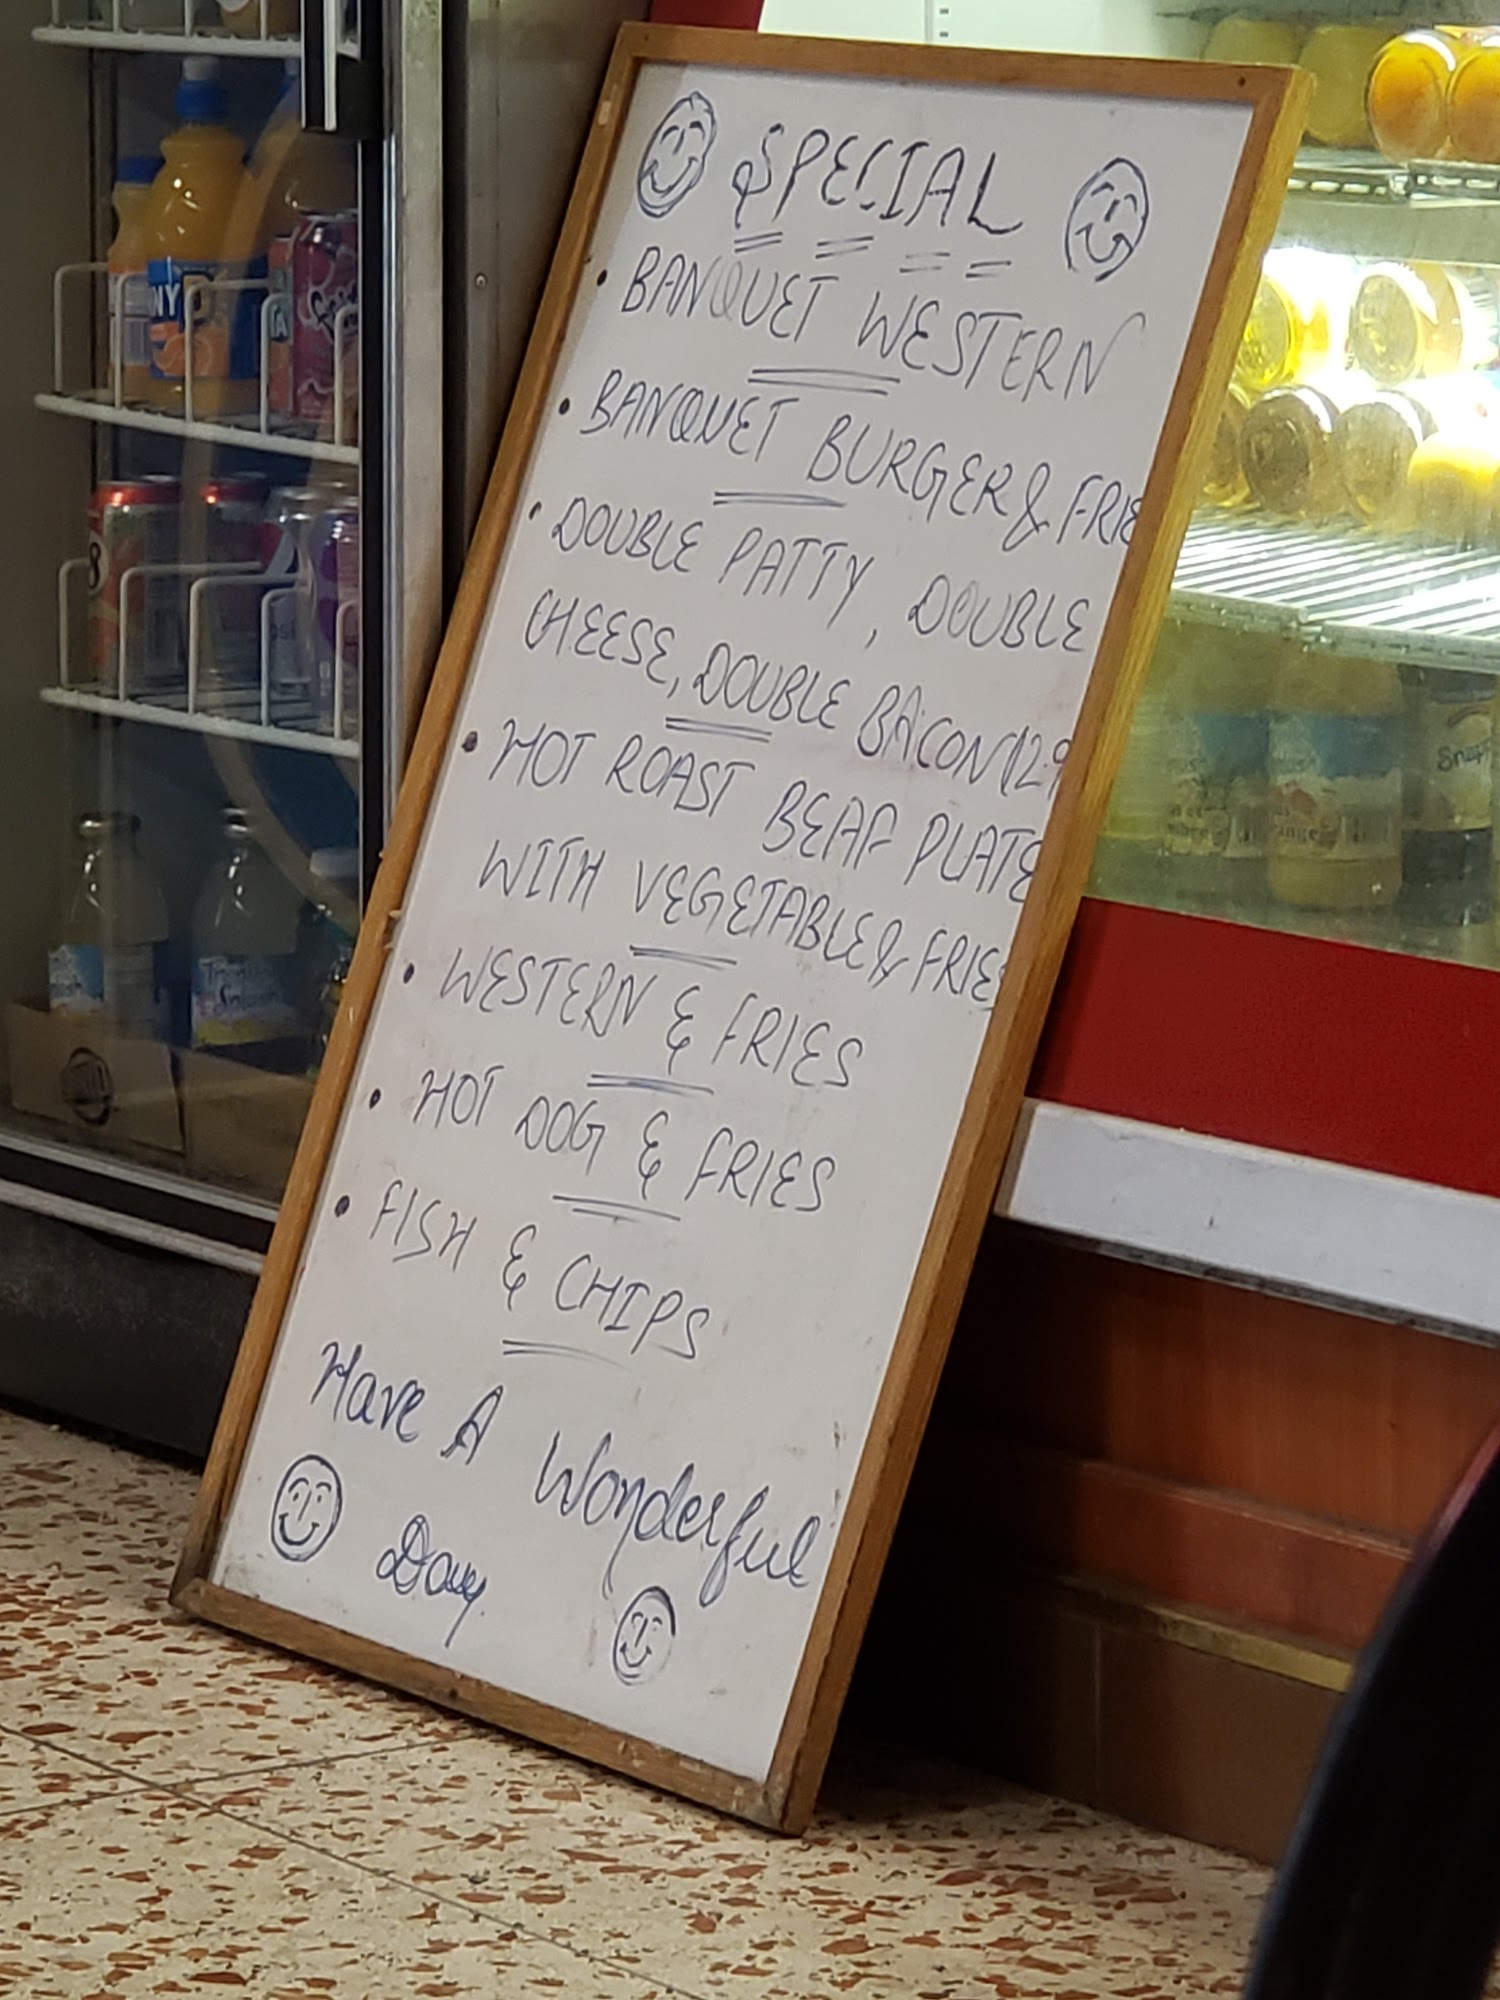 SPECIAL
• BANQUET WESTERN
• BANQUET BURGER & FRIE
• DOUBLE PATTY, DOUBLE
CHEESE, DOUBLE BACON (12.9
• HOT ROAST BEAF PLATE
WITH VEGETABLE & FRIES
• WESTERN & FRIES
• HOT DOG & FRIES
• FISH & CHIPS
Have A Wonderful
Day.
NY D
Tropical
Splash
Snap